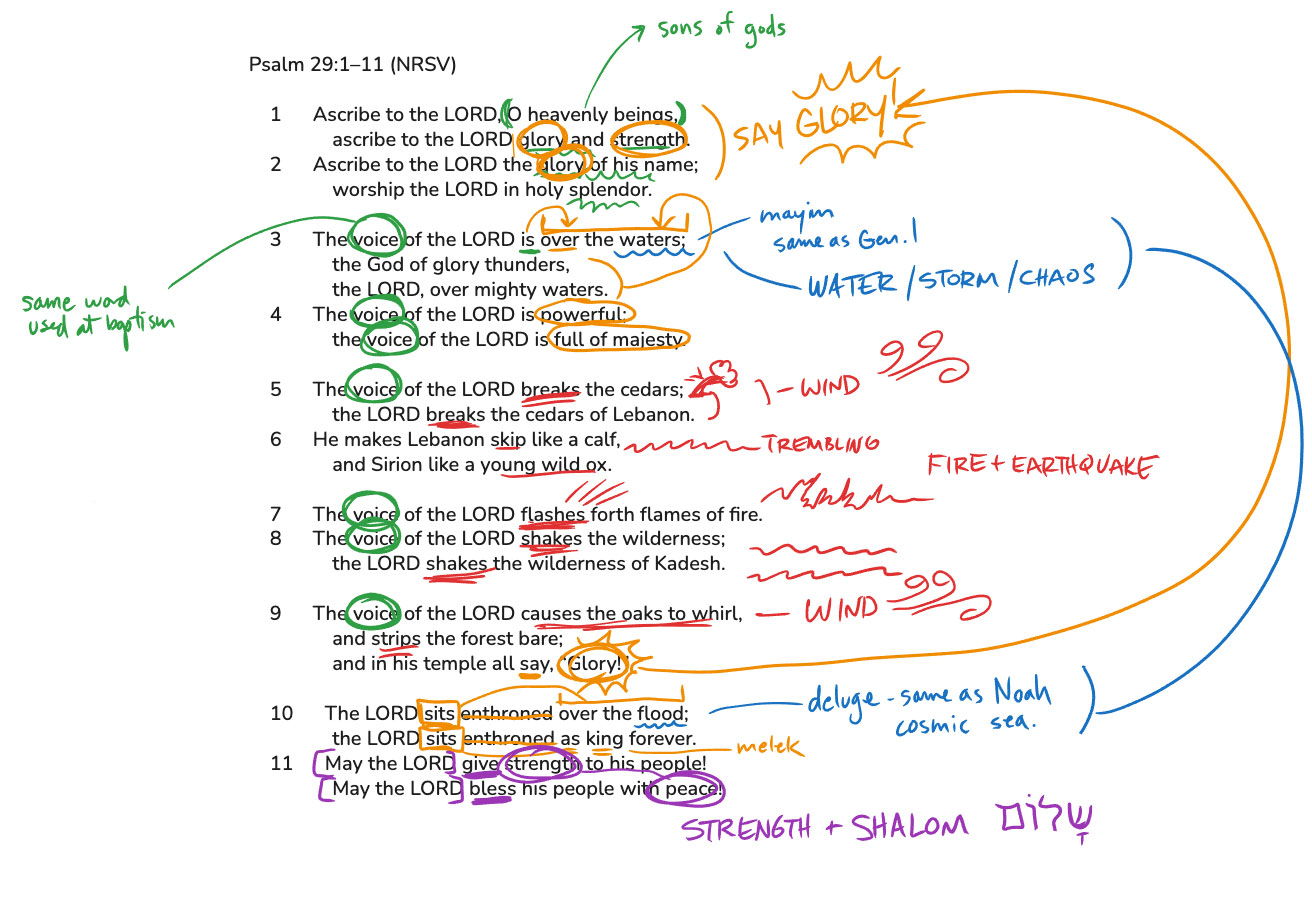 sons of gods
Psalm 29:1–11 (NRSV)
1 Ascribe to the LORD, O heavenly beings,
ascribe to the LORD glory and strength.
SAY GLORY!
2 Ascribe to the LORD the glory of his name;
worship the LORD in holy splendor.
3 The voice of the LORD is over the waters;
mayim
same as Gen. 1
the God of glory thunders,
the LORD, over mighty waters.
WATER / STORM / CHAOS
same word
used at baptism
4 The voice of the LORD is powerful;
the voice of the LORD is full of majesty.
5 The voice of the LORD breaks the cedars;
the LORD breaks the cedars of Lebanon.
- WIND
6 He makes Lebanon skip like a calf,
TREMBLING
and Sirion like a young wild ox.
FIRE + EARTHQUAKE
7 The voice of the LORD flashes forth flames of fire.
8 The voice of the LORD shakes the wilderness;
the LORD shakes the wilderness of Kadesh.
9 The voice of the LORD causes the oaks to whirl,
— WIND
and strips the forest bare;
and in his temple all say, “Glory!”
10 The LORD sits enthroned over the flood;
deluge - same as Noah
cosmic sea.
the LORD sits enthroned as king forever.
melek
11 May the LORD give strength to his people!
May the LORD bless his people with peace!
STRENGTH + SHALOM שָׁלוֹם